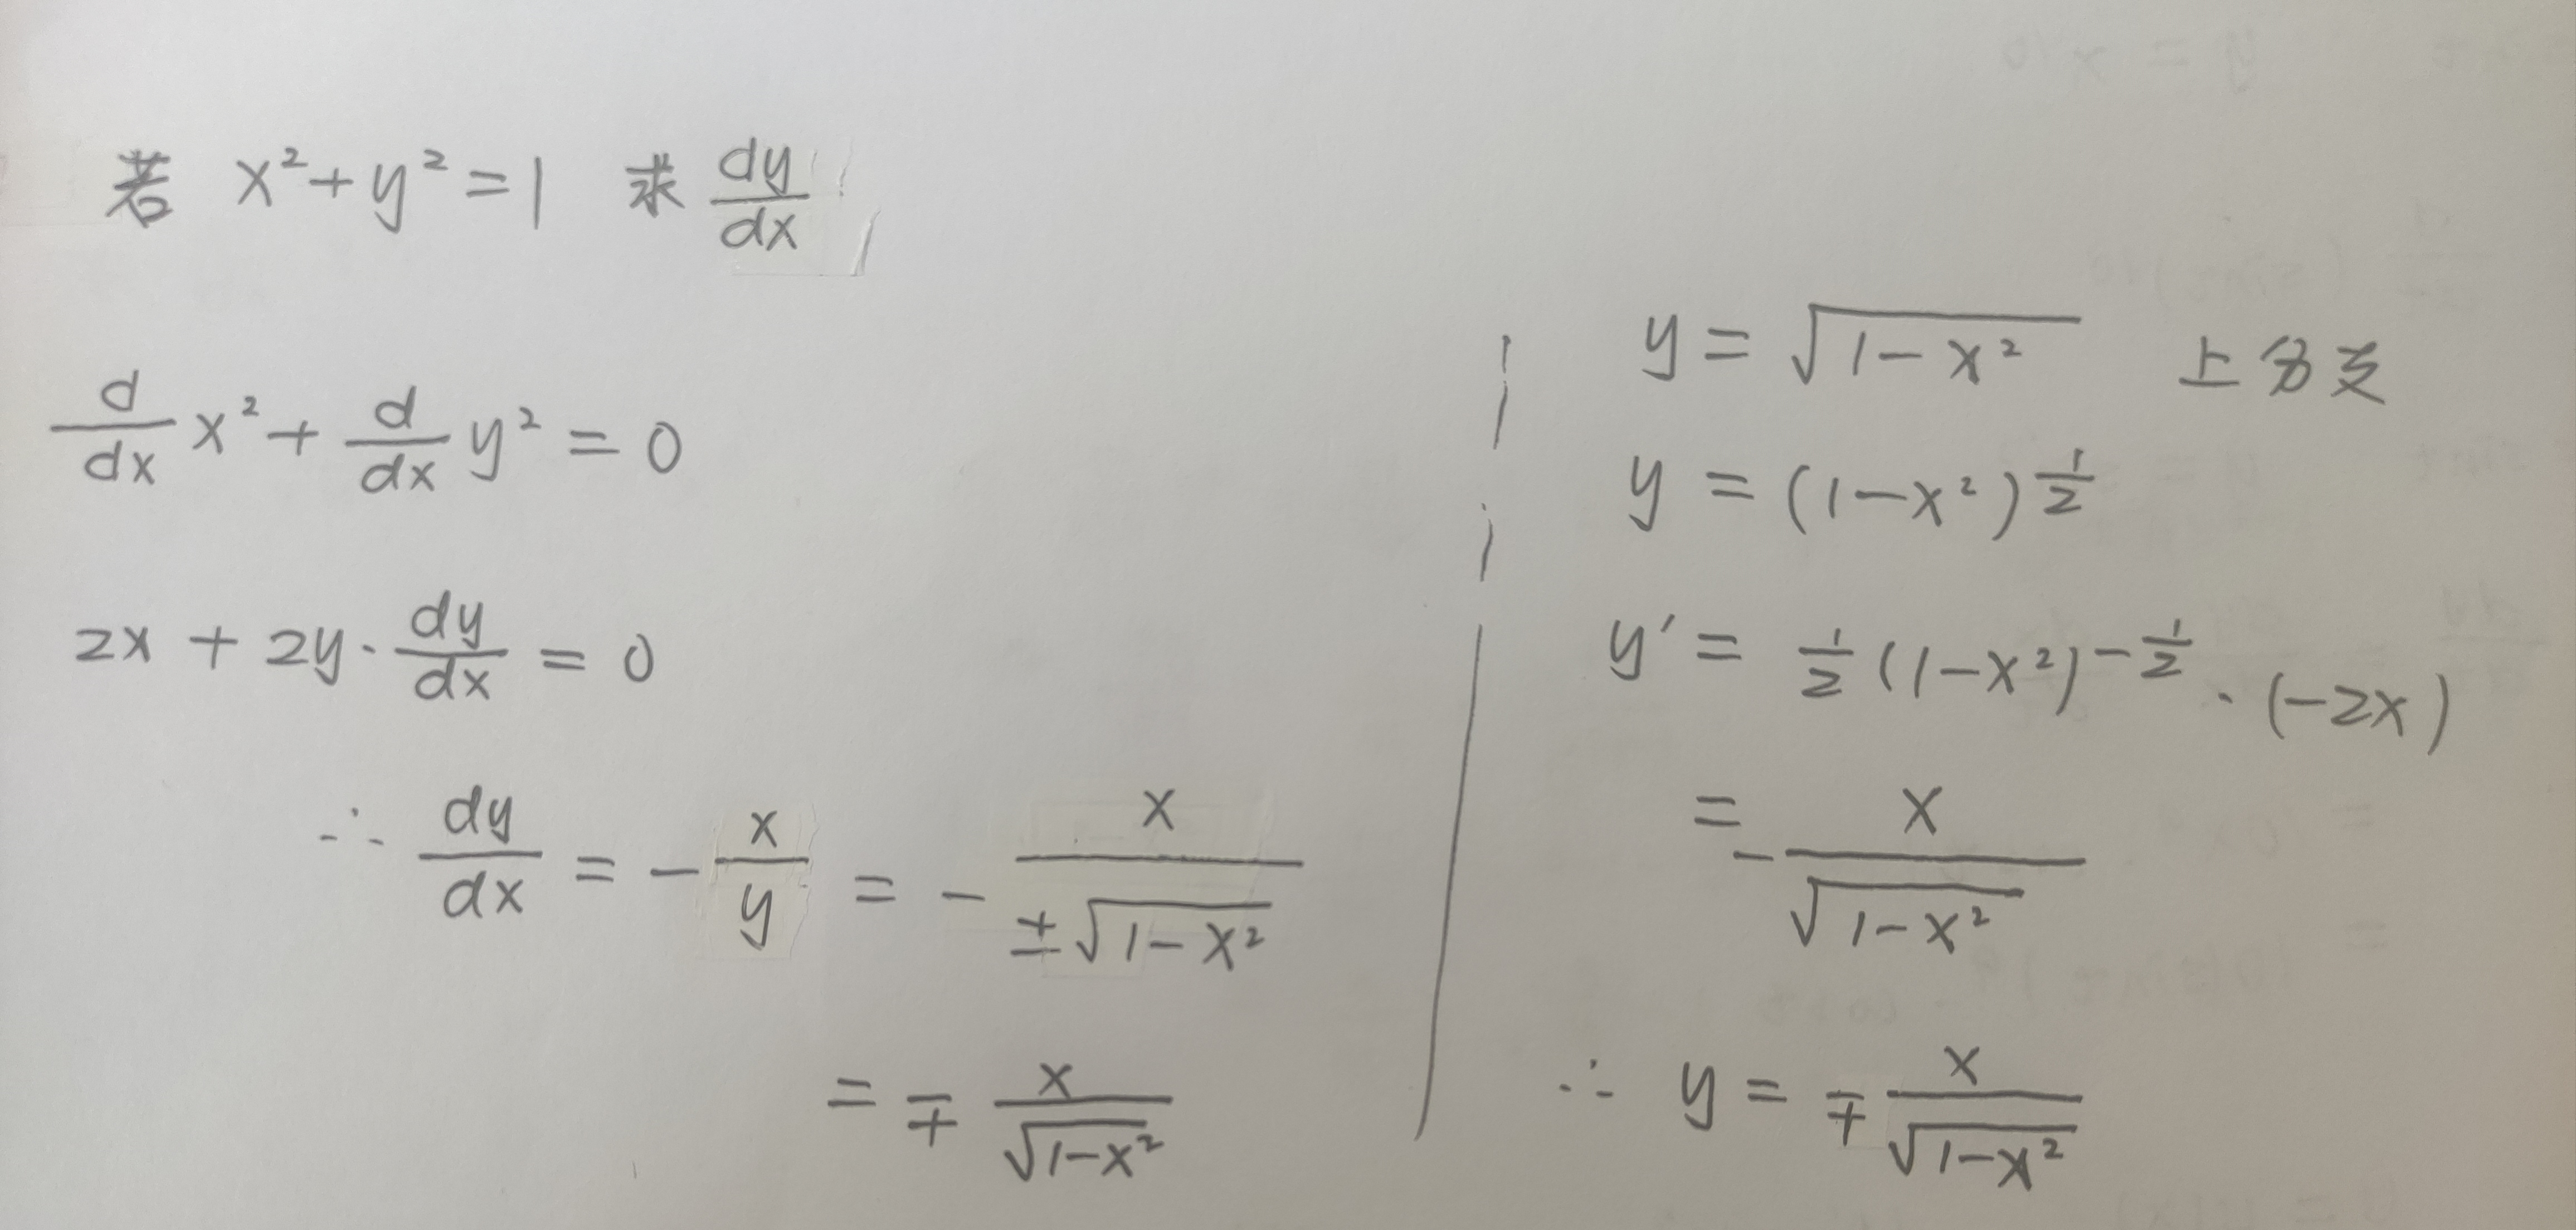 若 x²+y²=1 求 dy/dx
d/dx x² + d/dx y² = 0
2x + 2y · dy/dx = 0
∴ dy/dx = - x/y = - x/(±√(1-x²))
= ∓ x/√(1-x²)
y = √(1-x²) 上分支
y = (1-x²)^(1/2)
y' = 1/2 (1-x²)^(-1/2) · (-2x)
= - x/√(1-x²)
∴ y = ∓ x/√(1-x²)